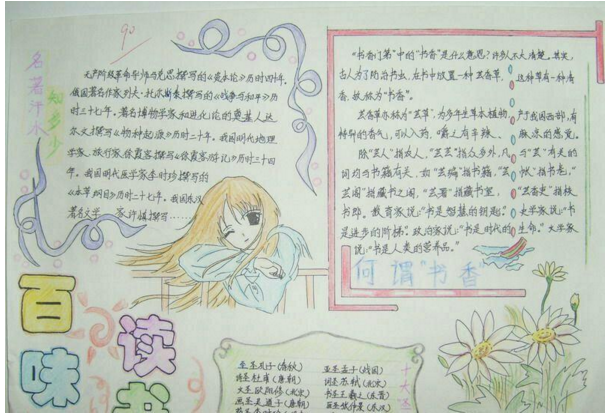 名著汗水
知多少
90
无产阶级革命导师马克思撰写的《资本论》历时四十年。
俄国著名作家列夫·托尔斯泰撰写的《战争与和平》历
时三十七年。著名博物学家和进化论的奠基人达
尔文撰写《物种起源》历时二十年。我国明代地理
学家、旅行家徐霞客撰写《徐霞客游记》历时三十四
年。我国明代医学家李时珍撰写的
《本草纲目》历时二十七年。我国东汉
著名文学家许慎撰写……
“书香门第”中的“书香”是什么意思?许多人不大清楚。其实,
古人为了防治书虫,在书中放置一种芸香草,这种草有一种清
香,故称为“书香”。
芸香草亦称为“芸草”,为多年生草本植物,产于我国西部,有
特别的香气,可以入药,嚼之有辛辣、麻凉的感觉。
除“芸人”指农人,“芸芸”指众多外,凡与“芸”有关的
词均与书籍有关,如“芸编”指书籍,“芸帙”指书卷,
“芸阁”指藏书之阁,“芸署”指藏书室,“芸香吏”指校
书郎。教育家说:“书是智慧的钥匙。”史学家说:“书
是进步的阶梯。”政治家说:“书是时代的生命。”文学家
说:“书是人类的营养品。”
何谓“书香”
百味
读书
至圣孔子(春秋)
亚圣孟子(战国)
诗圣杜甫(唐朝)
词圣苏轼(北宋)
文圣欧阳修(北宋)
书圣王羲之(东晋)
画圣吴道子(唐朝)
医圣张仲景(东汉)
十大